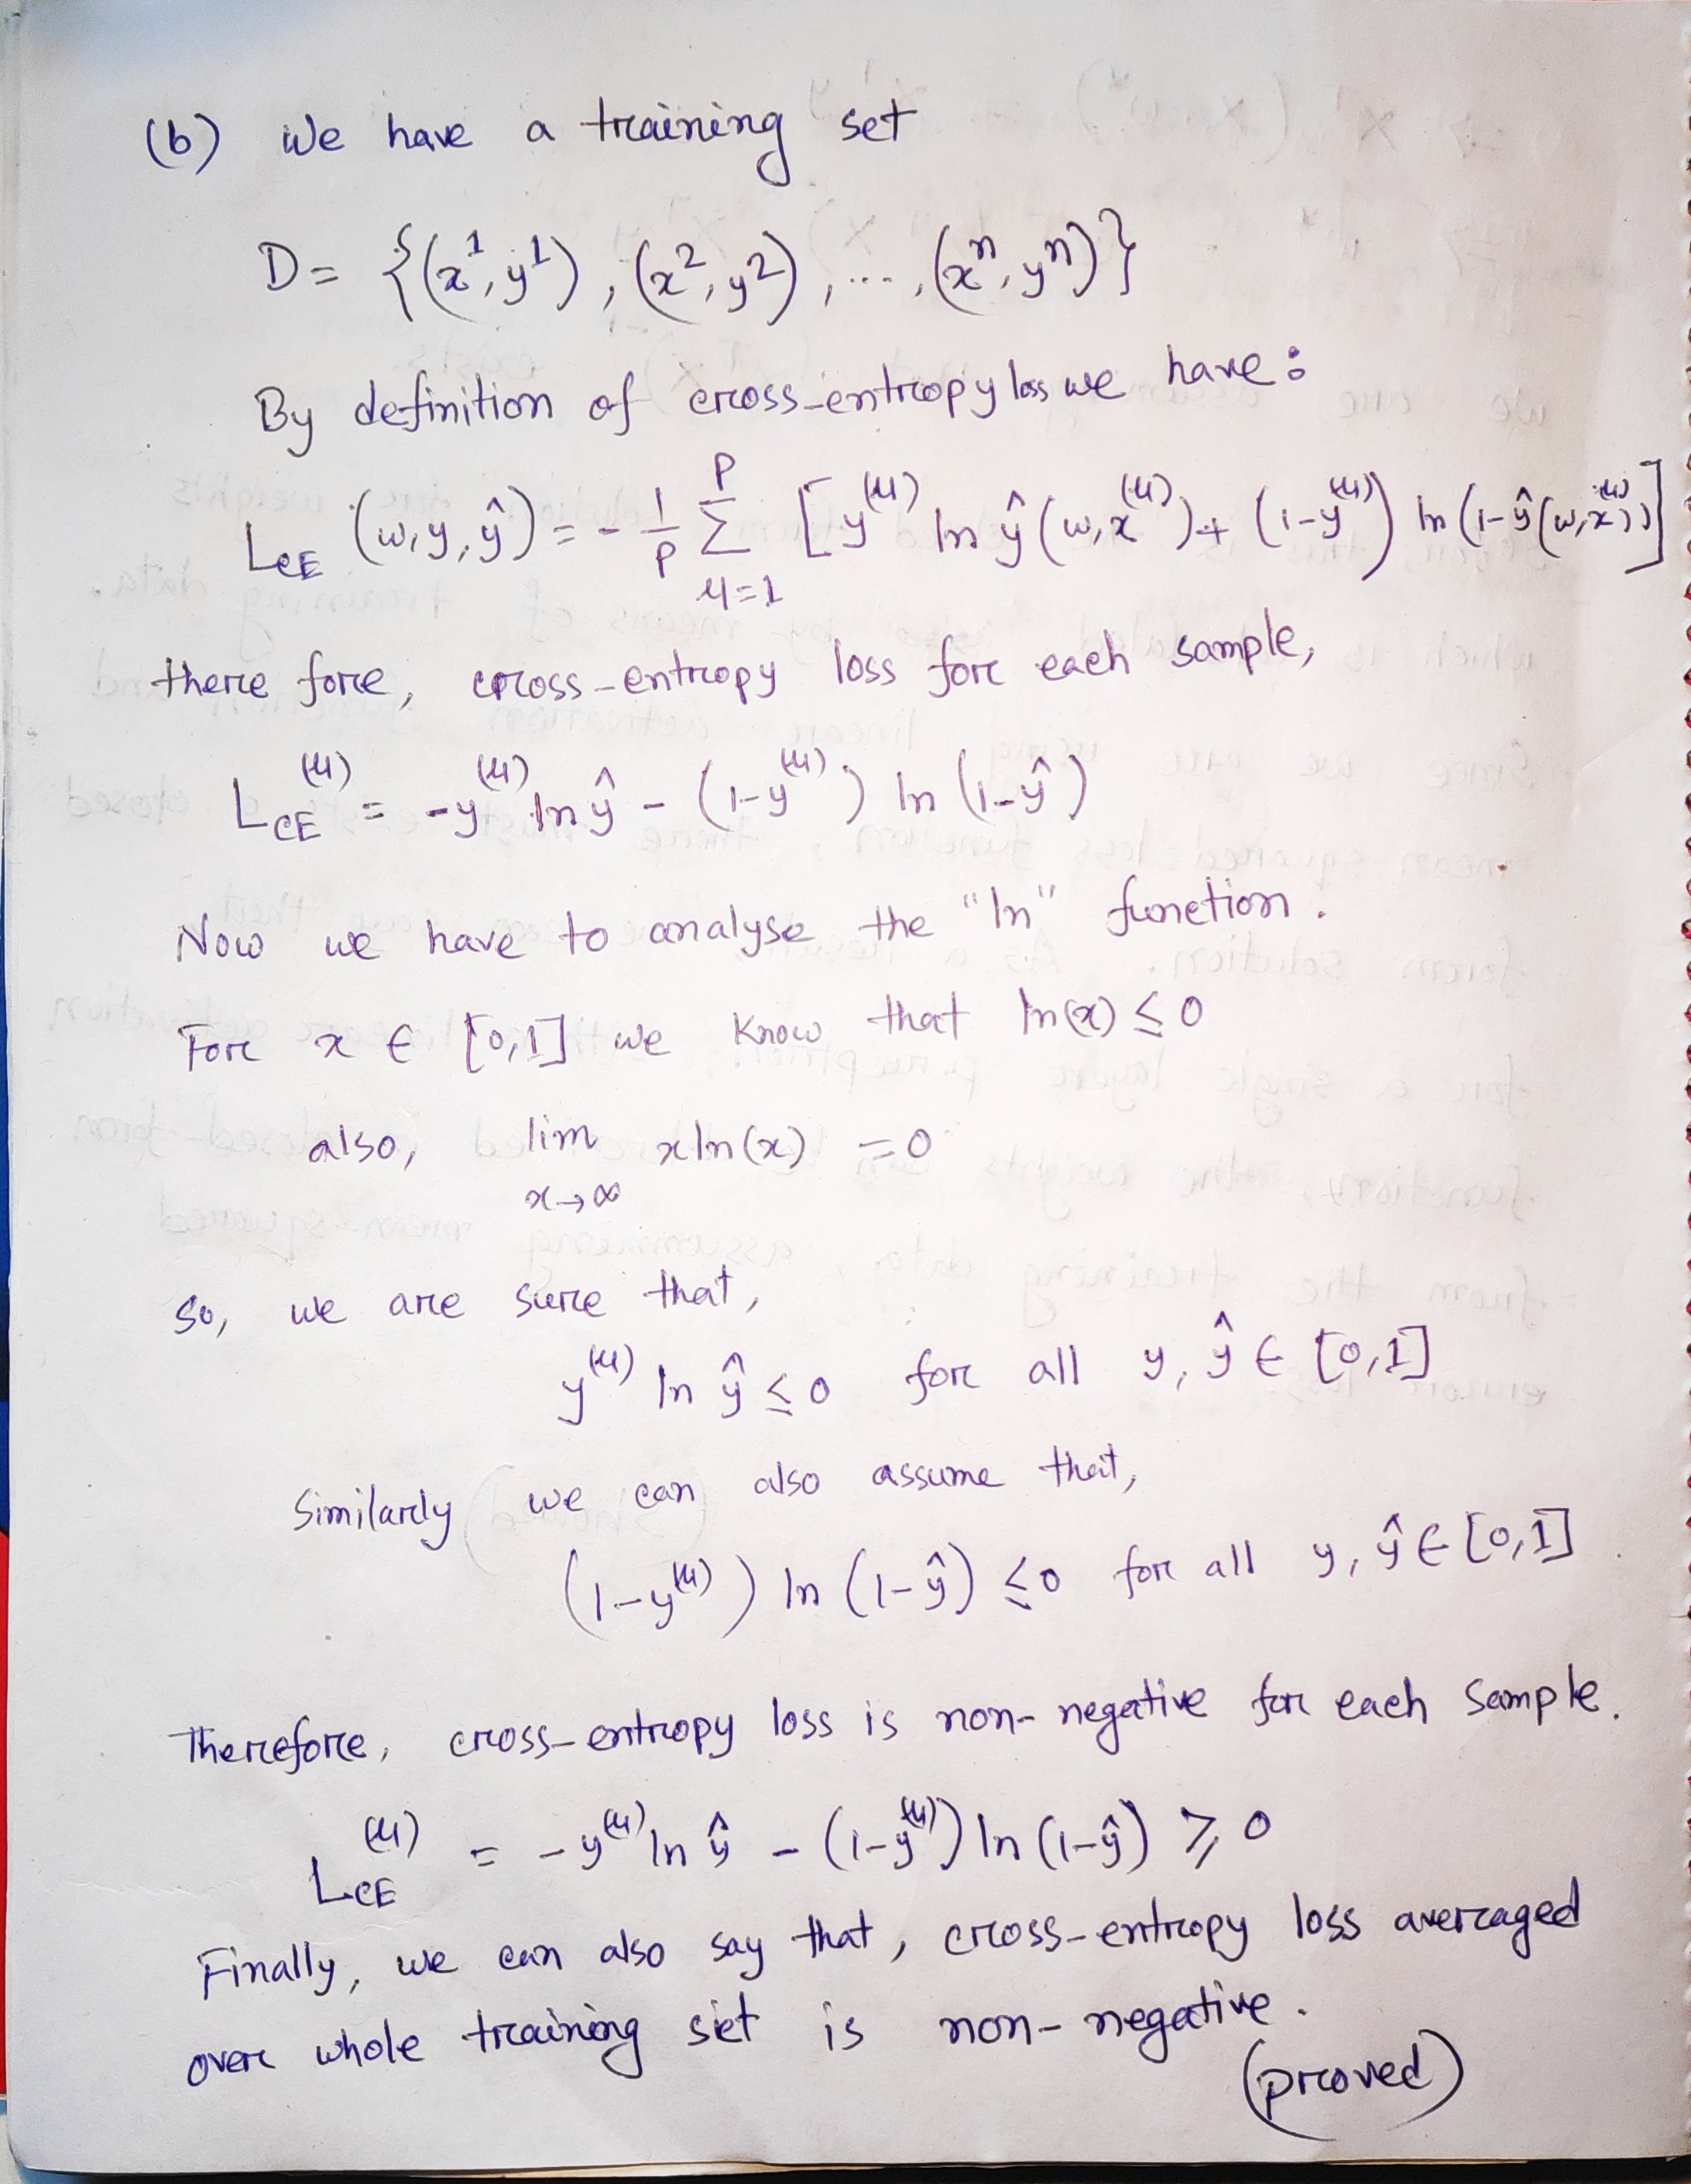 (b) We have a training set
D = {(x¹, y¹), (x², y²), ..., (xⁿ, yⁿ)}
By definition of cross-entropy loss we have:
L_CE (w, y, ŷ) = - 1/P Σ_{μ=1}^{P} [y^(μ) ln ŷ(w, x^(μ)) + (1-y^(μ)) ln (1-ŷ(w, x^(μ)))]
there fore, cross-entropy loss for each sample,
L_CE^(μ) = -y^(μ) ln ŷ - (1-y^(μ)) ln (1-ŷ)
Now we have to analyse the "ln" function.
For x ∈ [0,1] we know that ln(x) ≤ 0
also, lim_{x→∞} x ln(x) = 0
so, we are sure that,
y^(μ) ln ŷ ≤ 0 for all y, ŷ ∈ [0,1]
Similarly we can also assume that,
(1-y^(μ)) ln (1-ŷ) ≤ 0 for all y, ŷ ∈ [0,1]
Therefore, cross-entropy loss is non-negative for each sample.
L_CE^(μ) = -y^(μ) ln ŷ - (1-y^(μ)) ln (1-ŷ) ≥ 0
Finally, we can also say that, cross-entropy loss averaged
over whole training set is non-negative.
(proved)